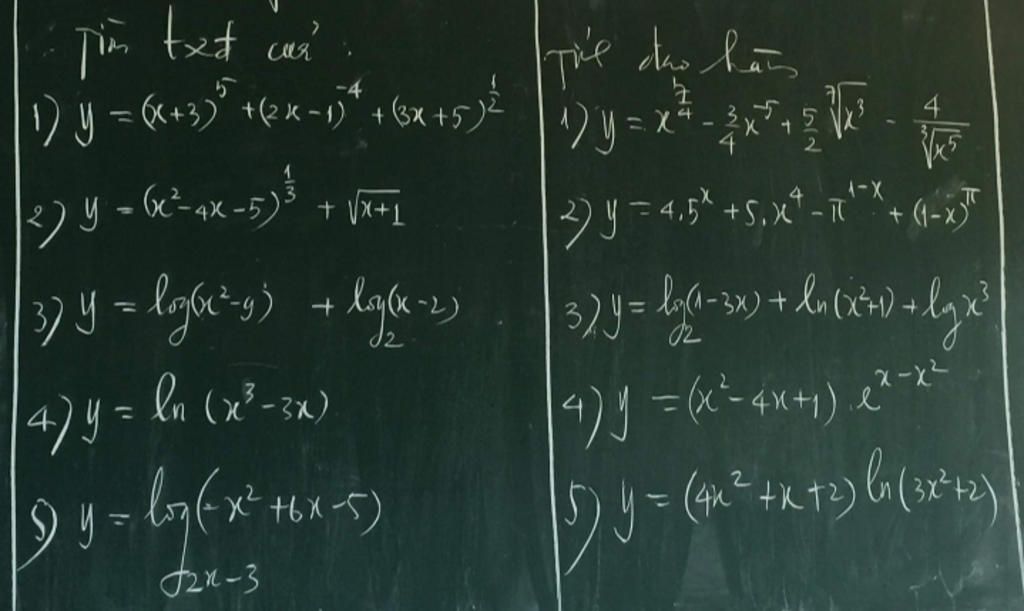 Tìm txđ của:
1) y = (x+3)^5 + (2x-1)^-4 + (3x+5)^1/2
2) y = (x²-4x-5)^1/3 + √x+1
3) y = log(x²-9) + log₂(x-2)
4) y = ln (x³-3x)
5) y = log_2x-3(-x²+6x-5)
Tính đạo hàm
1) y = x^7/4 - 3/4 x^-5 + 5/2 ⁷√x³ - 4/³√x⁵
2) y = 4.5^x + 5.x⁴ - π^1-x + (1-x)^π
3) y = log₂(1-3x) + ln(x²+1) + log x³
4) y = (x²-4x+1).e^x-x²
5) y = (4x²+x+2) ln(3x²+2)